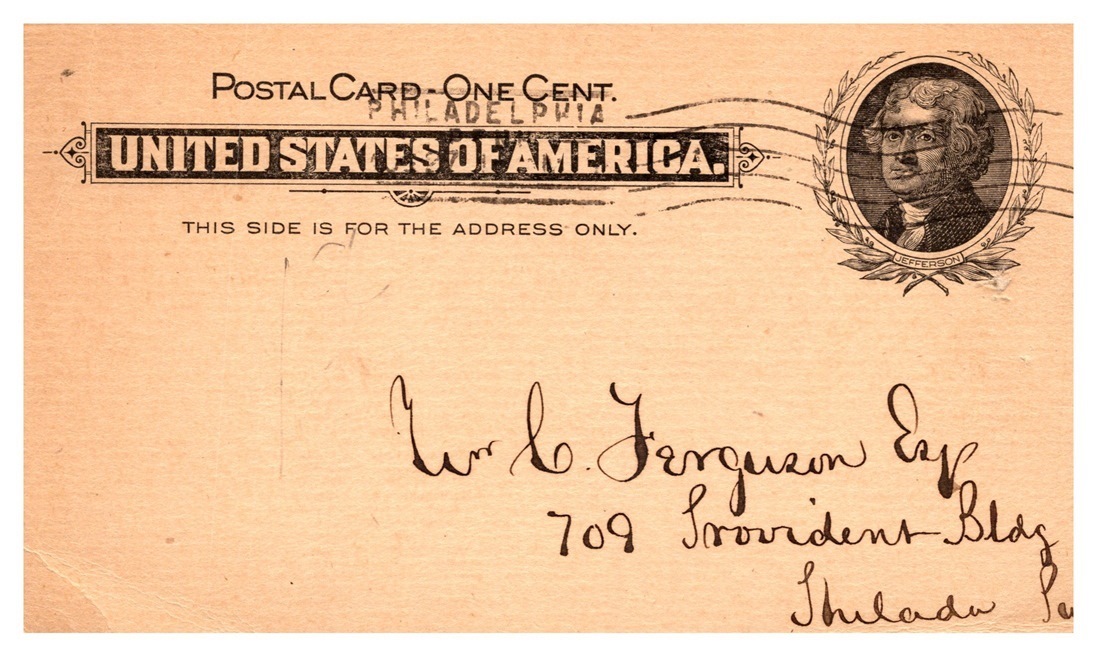 POSTAL CARD - ONE CENT.
PHILADELPHIA
PENN
UNITED STATES OF AMERICA.
THIS SIDE IS FOR THE ADDRESS ONLY.
JEFFERSON
Wm C. Ferguson Esq
709 Provident Bldg
Philada Pa